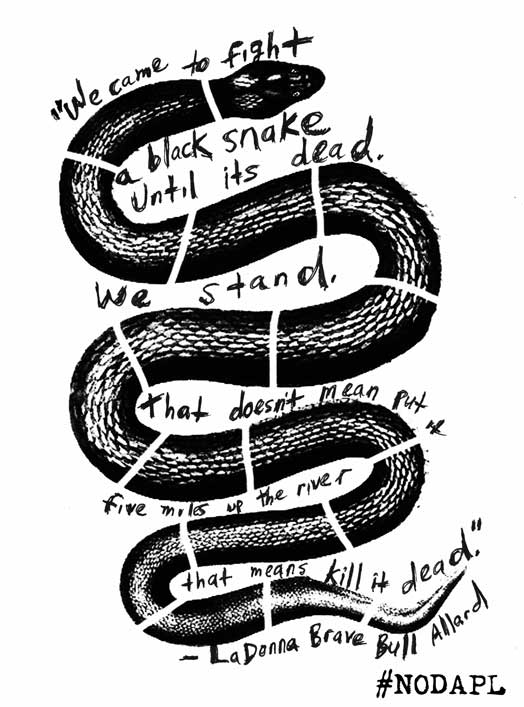 "We came to fight
a black snake
until its dead.
We stand.
that doesn't mean put it
five miles up the river
that means kill it dead."
- LaDonna Brave Bull Allard
#NODAPL